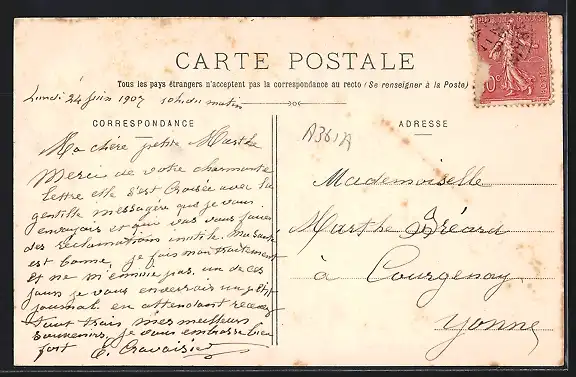 RÉPUBLIQUE FRANÇAISE
10c
CARTE POSTALE
Tous les pays étrangers n'acceptent pas la correspondance au recto (Se renseigner à la Poste)
Lundi 24 Juin 1907 10h du matin
CORRESPONDANCE
ADRESSE
A361A
Ma chère petite Marthe
Merci de votre charmante
lettre elle s'est Croisée avec la
gentille messagère que je vous
envoyais et qui vas vous faire
des réclamations inutile. Ma santé
est bonne, je fais mon traitement
et ne m'ennuie pas, un de ces
jours je vous enverais un petit
journal en attendant recevez
tout mes meilleurs
souvenirs, je vous embrasse bien
fort
Mademoiselle
Marthe Bréard
à Courgenay
Yonne